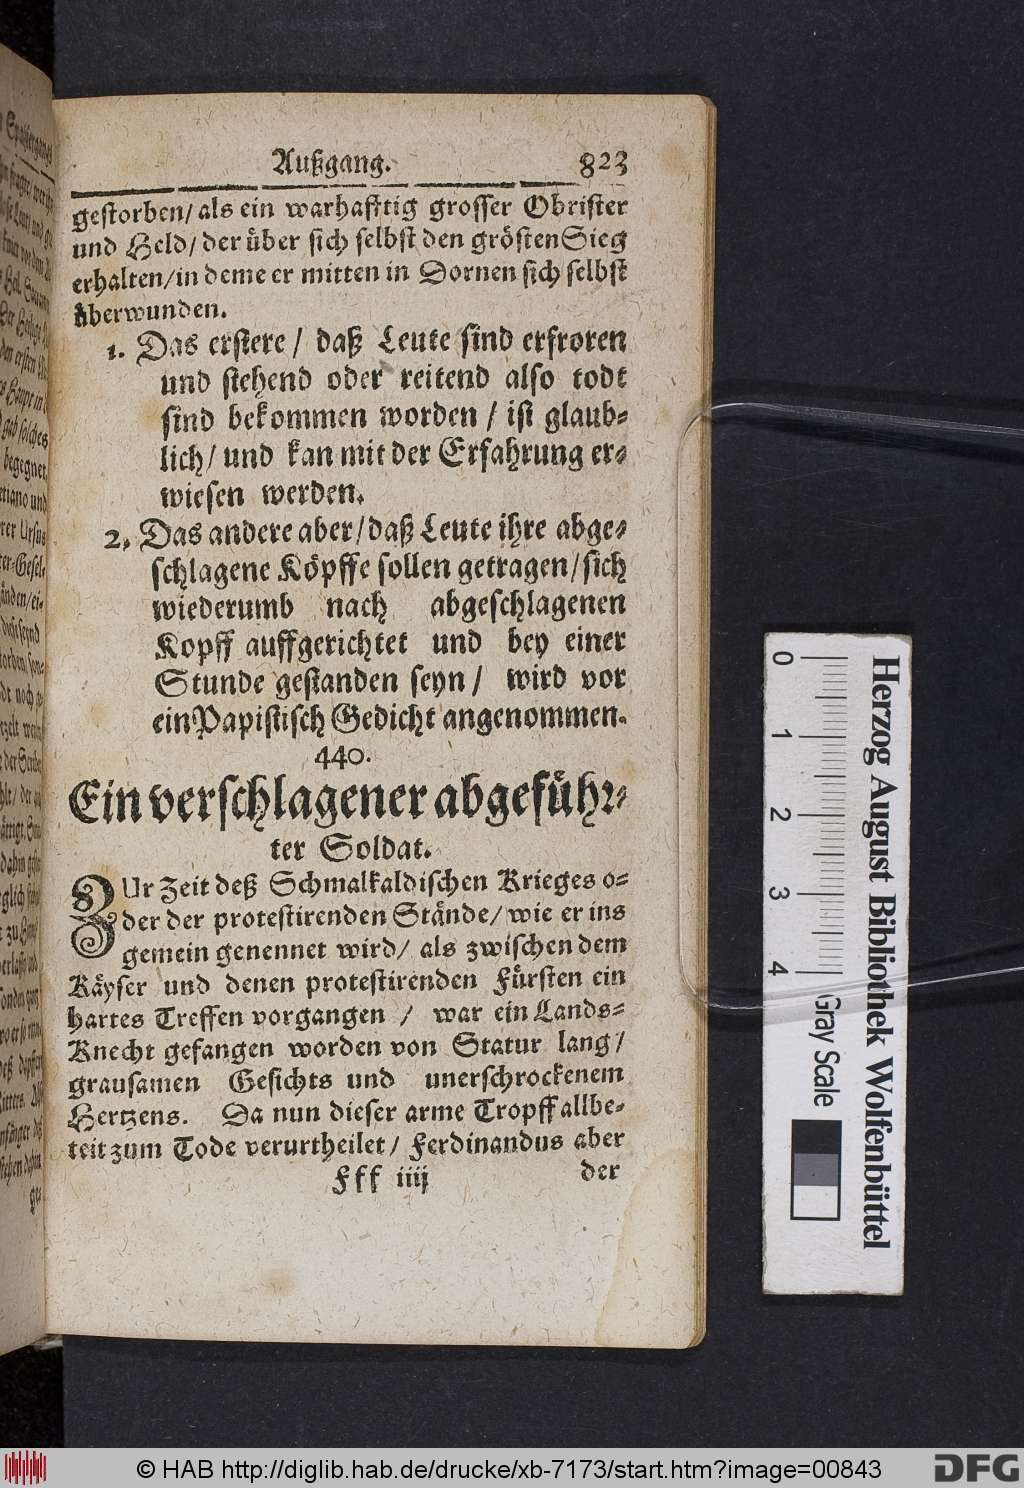 Außgang. 823
gestorben/ als ein warhafftig grosser Obrister
und Held/ der über sich selbst den grösten Sieg
erhalten/ in deme er mitten in Dornen sich selbst
überwunden.
1. Das erstere / daß Leute sind erfroren
und stehend oder reitend also todt
sind bekommen worden / ist glaub-
lich/ und kan mit der Erfahrung er-
wiesen werden.
2. Das andere aber/ daß Leute ihre abge-
schlagene Köpffe sollen getragen/ sich
wiederumb nach abgeschlagenen
Kopff auffgerichtet und bey einer
Stunde gestanden seyn / wird vor
ein Papistisch Gedicht angenommen.
440.
Ein verschlagener abgeführ-
ter Soldat.
ZUr Zeit deß Schmalkaldischen Krieges o-
der der protestirenden Stände/ wie er ins
gemein genennet wird/ als zwischen dem
Käyser und denen protestirenden Fürsten ein
hartes Treffen vorgangen / war ein Lands-
Knecht gefangen worden von Statur lang/
grausamen Gesichts und unerschrockenem
Hertzens. Da nun dieser arme Tropff allbe-
reit zum Tode verurtheilet/ Ferdinandus aber
Fff iiij der
0 1 2 3 4
Gray Scale
Herzog August Bibliothek Wolfenbüttel
© HAB http://diglib.hab.de/drucke/xb-7173/start.htm?image=00843
DFG